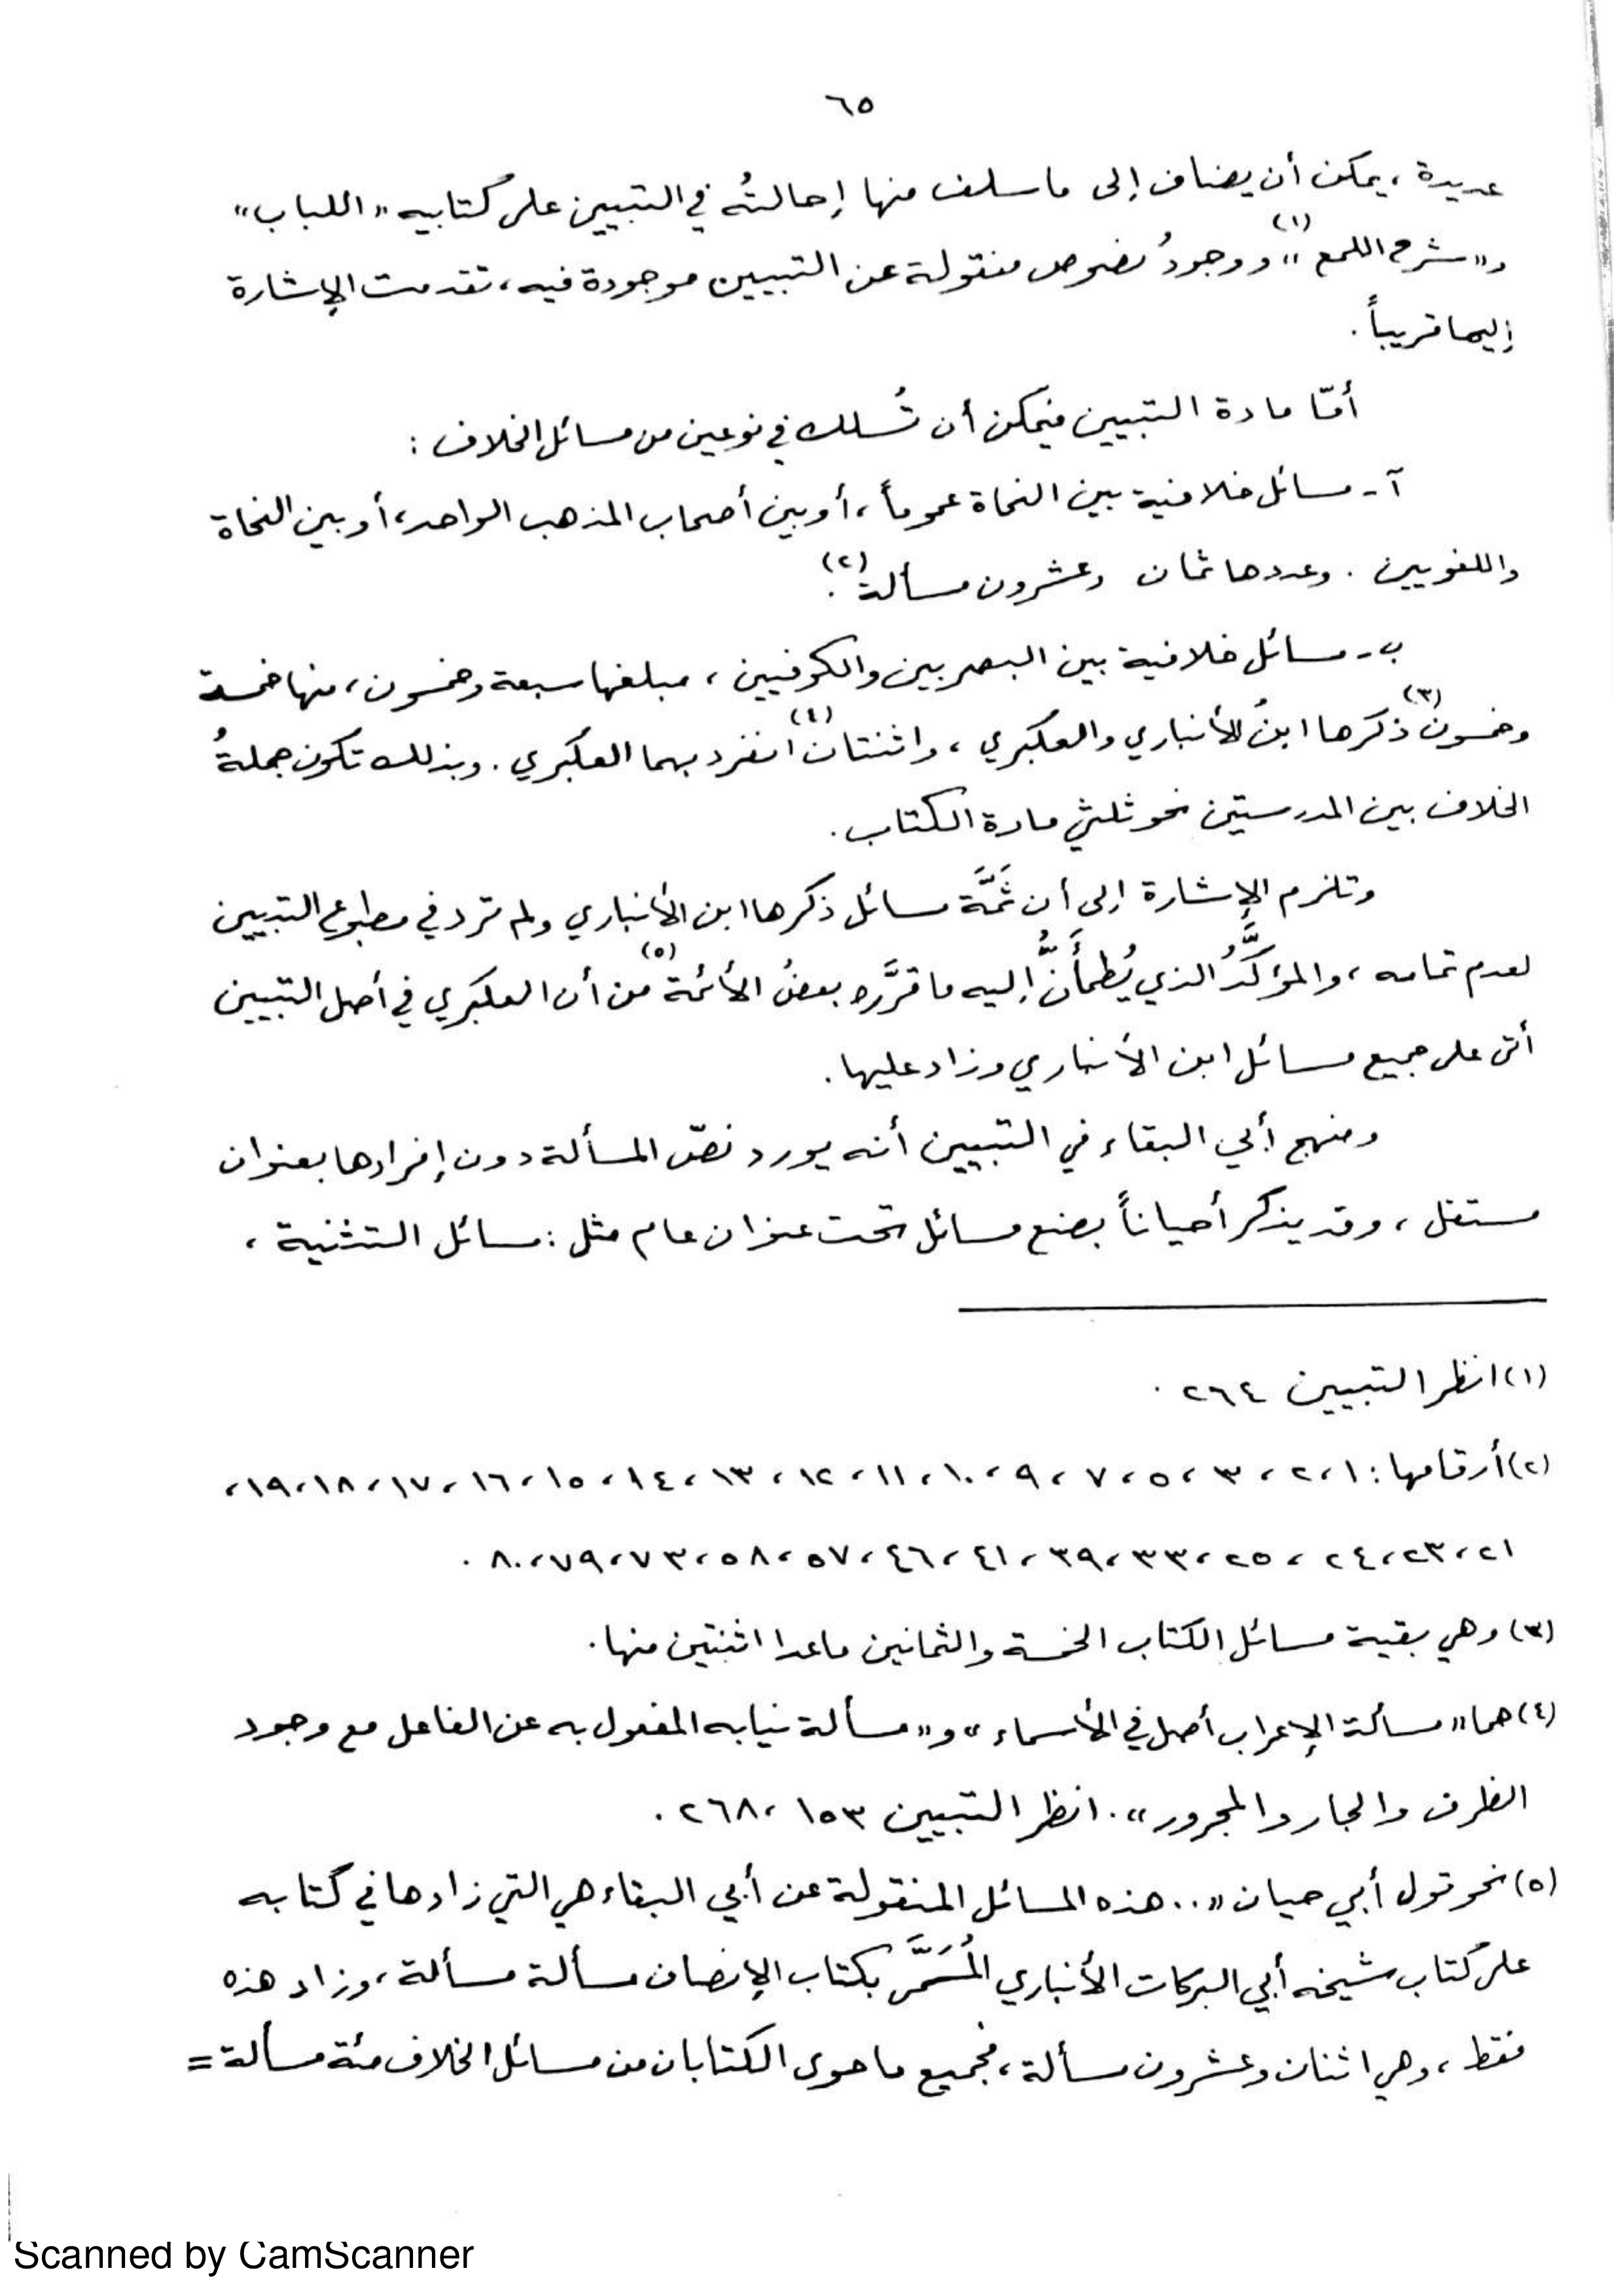 ٦٥
عديدة ، يمكن أن يضاف إلى ما سلف منها إحالتُه في التبيين على كتابيه « اللباب »
و« شرح اللمع »(١) ووجودُ نصوص منقولة عن التبيين موجودة فيه ، تقدمت الإشارة
إليها قريباً .
أمّا مادة التبيين فيمكن أن تُسلك في نوعين من مسائل الخلاف :
آ - مسائل خلافية بين النحاة عموماً ، أو بين أصحاب المذهب الواحد ، أو بين النحاة
واللغويين . وعددها ثمان وعشرون مسألة(٢) .
ب - مسائل خلافية بين البصريين والكوفيين ، مبلغها سبعة وخمسون ، منها خمسة
وخمسون(٣) ذكرها ابنُ الأنباري والعكبري ، واثنتان(٤) انفرد بهما العكبري . وبذلك تكون جملةُ
الخلاف بين المدرستين نحو ثلثي مادة الكتاب .
وتلزم الإشارة إلى أن ثَمَّةَ مسائل ذكرها ابن الأنباري ولم ترد في مطبوع التبيين
لعدم تمامه ، والمؤكَّدُ الذي يُطمأَنُّ إليه ما قرَّره بعضُ الأئمة(٥) من أن العكبري في أصل التبيين
أتى على جميع مسائل ابن الأنباري وزاد عليها .
ومنهج أبي البقاء في التبيين أنه يورد نصّ المسألة دون إفرادها بعنوان
مستقل ، وقد يذكر أحياناً بضع مسائل تحت عنوان عام مثل : مسائل التثنية ،
(١) انظر التبيين ٢٦٤ .
(٢) أرقامها : ١ ، ٢ ، ٣ ، ٥ ، ٧ ، ٩ ، ١٠ ، ١١ ، ١٢ ، ١٣ ، ١٤ ، ١٥ ، ١٦ ، ١٧ ، ١٨ ، ١٩ ،
٢١ ، ٢٣ ، ٢٤ ، ٢٥ ، ٣٣ ، ٣٩ ، ٤١ ، ٤٦ ، ٥٧ ، ٥٨ ، ٧٣ ، ٧٩ ، ٨٠ .
(٣) وهي بقية مسائل الكتاب الخمسة والثمانين ما عدا اثنتين منها .
(٤) هما « مسألة الإعراب أصل في الأسماء » و« مسألة نيابه المفعول به عن الفاعل مع وجود
الظرف والجار والمجرور » . انظر التبيين ١٥٣ ، ٢٦٨ .
(٥) نحو قول أبي حيان « .. هذه المسائل المنقولة عن أبي البقاء هي التي زادها في كتابه
على كتاب شيخه أبي البركات الأنباري المُسَمَّى بكتاب الإنصاف مسألة مسألة ، وزاد هذه
فقط ، وهي اثنتان وعشرون مسألة ، فجميع ما حوى الكتابان من مسائل الخلاف مئة مسألة =
Scanned by CamScanner